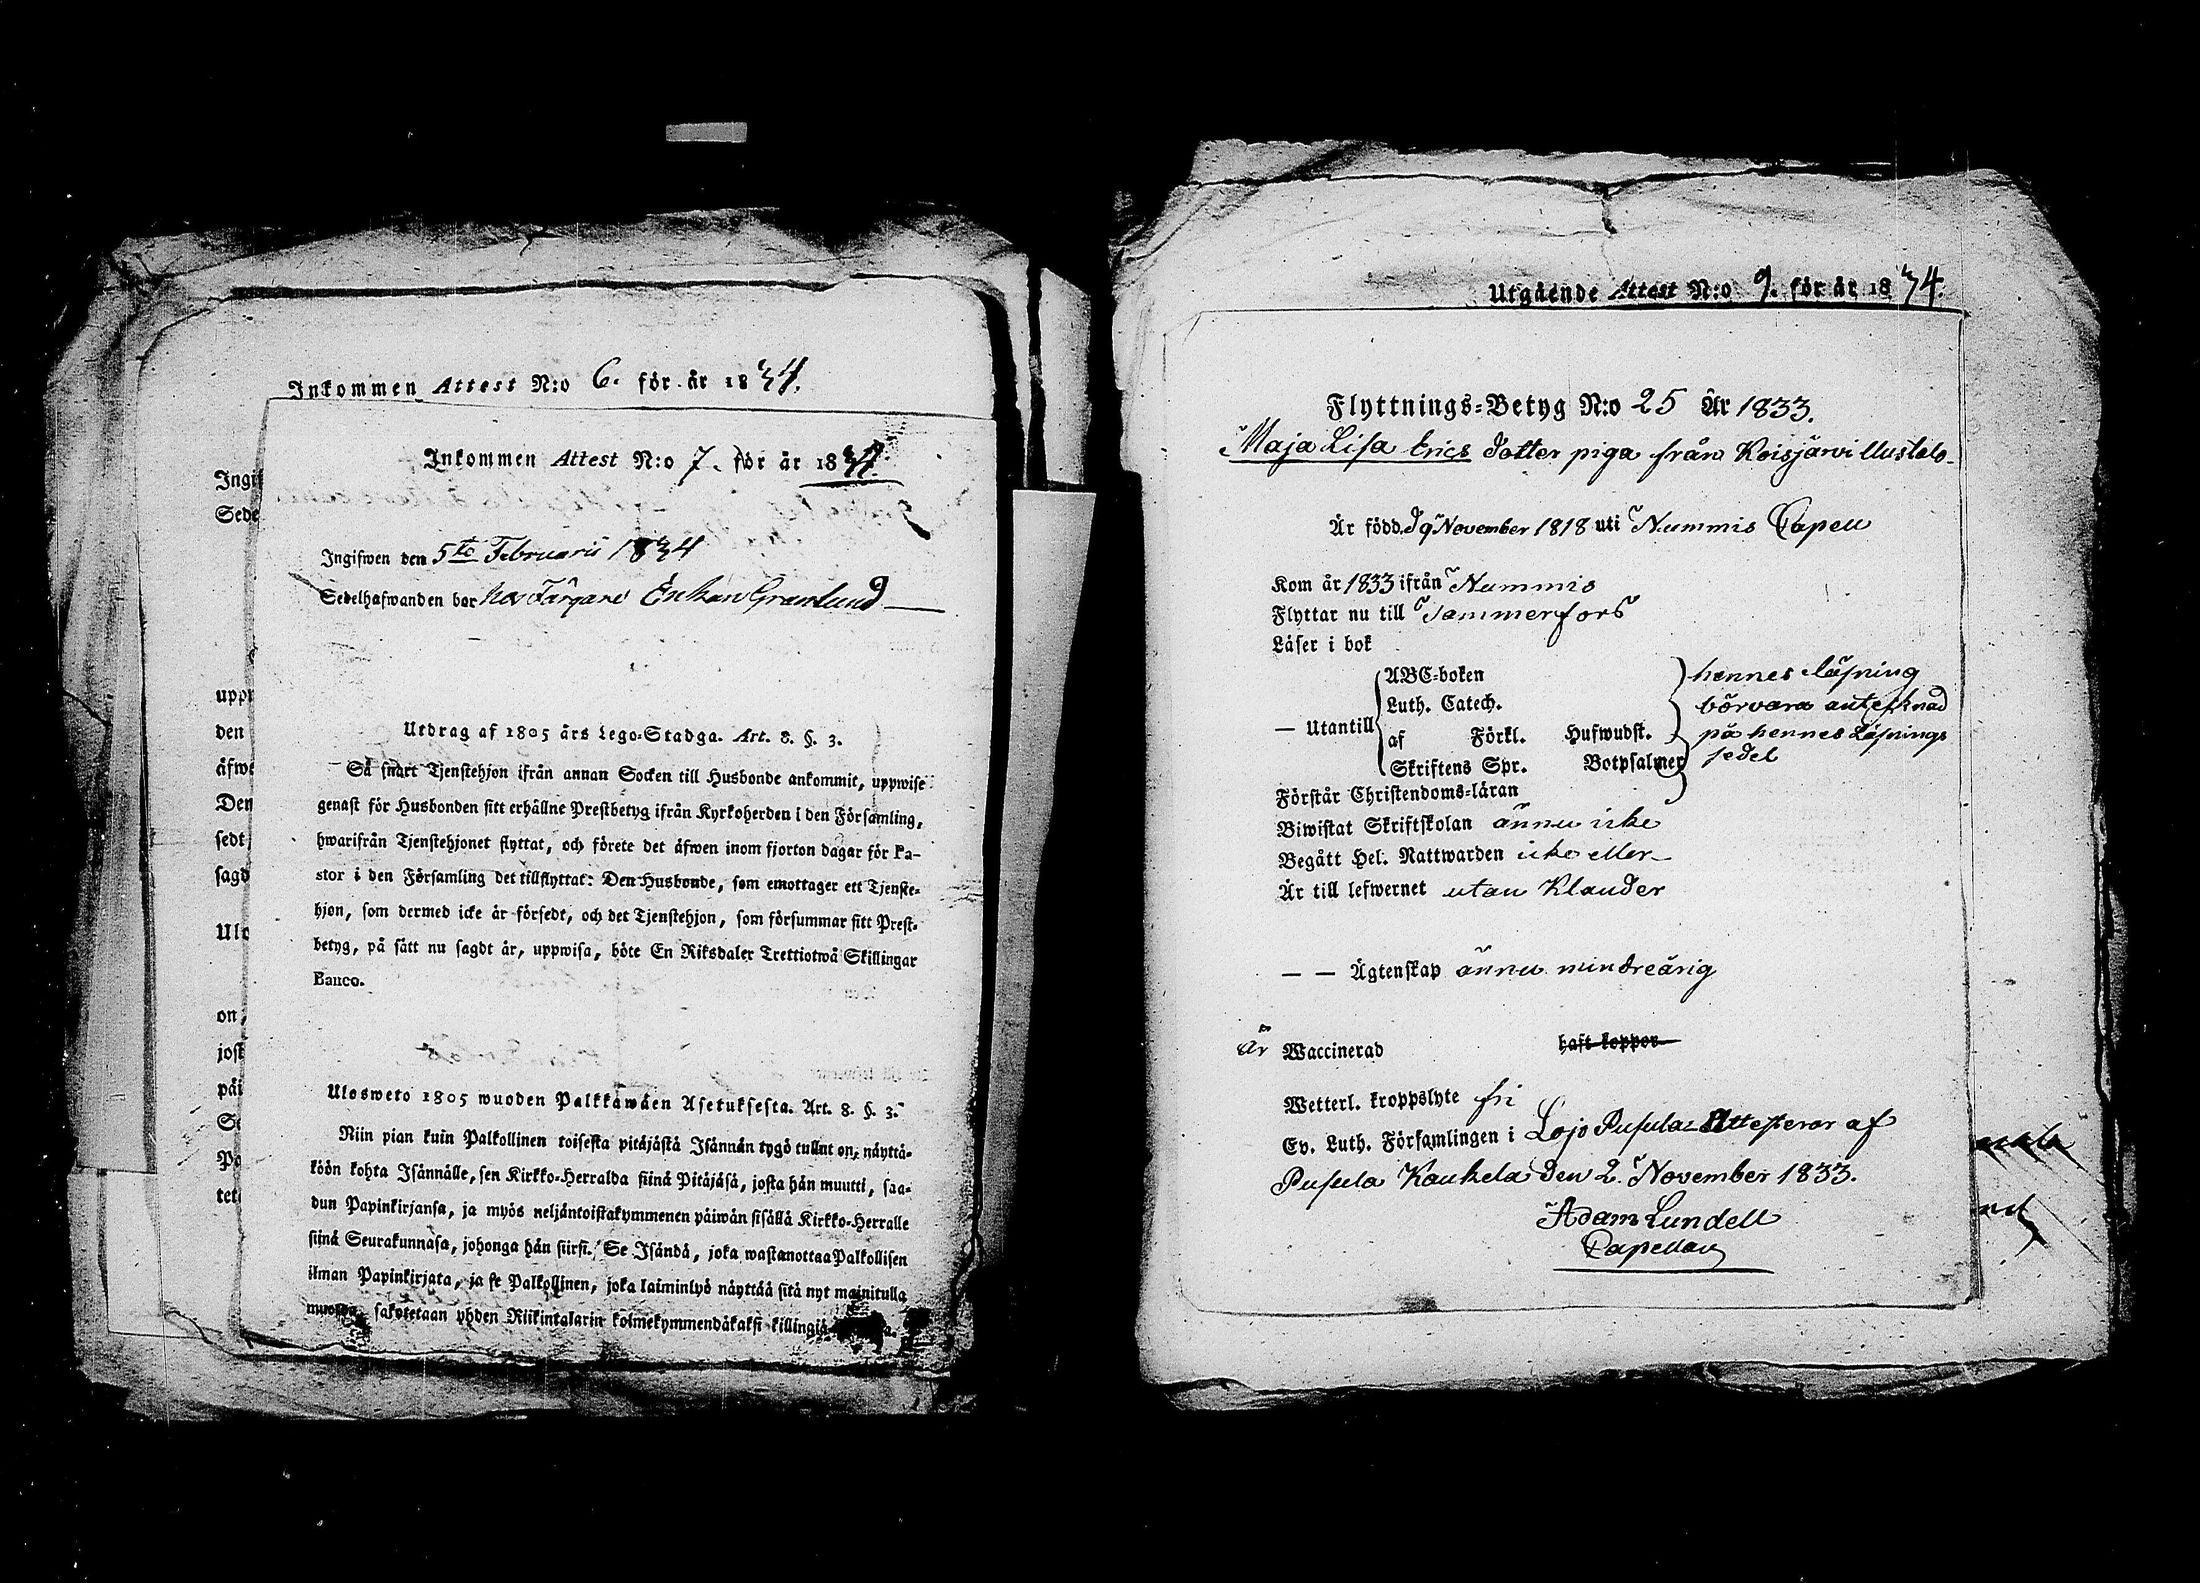 Inkommen Attest N:o 6. för år 1834.
Inkommen Attest N:o 7. för år 1834.
Ingifwen den 5te Februarii 1834
Sedelhafwanden bor hos Färgare Enkan Granlund
Utdrag af 1805 års Lego-Stadga. Art. 8. §. 3.
Så snart Tjenstehjon ifrån annan Socken till Husbonde ankommit, uppwise
genast för Husbonden sitt erhållne Prestbetyg ifrån Kyrkoherden i den Församling,
hwarifrån Tjenstehjonet flyttat, och förete det äfwen inom fjorton dagar för Pa-
stor i den Församling det tillflyttat: Den Husbonde, som emottager ett Tjenste-
hjon, som dermed icke är försedt, och det Tjenstehjon, som försummar sitt Prest-
betyg, på sätt nu sagdt är, uppwisa, böte En Riksdaler Trettiotwå Skillingar
Banco.
Ulosweto 1805 wuoden Palkkawäen Asetuksesta. Art. 8. §. 3.
Niin pian kuin Palkollinen toisesta pitäjästä Isännän tygö tullut on, näyttä-
köön kohta Isännälle, sen Kirkko-Herralda siinä Pitäjäsä, josta hän muutti, saa-
dun Papinkirjansa, ja myös neljäntoistakymmenen päiwän sisällä Kirkko-Herralle
siinä Seurakunnasa, johonga hän siirsi. Se Isändä, joka wastanottaa Palkollisen
ilman Papinkirjata, ja se Palkollinen, joka laiminlyö näyttää sitä nyt mainitulla
muodon, sakotetaan yhden Riikintalarin kolmekymmendäkaksi killingiä
Ingif
Sede
uppr
den
äfwe
Den
sedt
sagd
Ulo
on,
jost
päi
Se
Pa
tet
Utgående Attest N:o 9. för år 1834.
Flyttnings-Betyg N:o 25 År 1833.
Maja Lisa Erics dotter piga från Koisjärvi Uustalo
Är född d 9 November 1818 uti Nummis Capell
Kom år 1833 ifrån Nummis
Flyttar nu till Tammerfors
Läser i bok
— Utantill
ABC-boken
Luth. Catech.
af Förkl. Hufwudst.
Skriftens Spr. Botpsalmer
hennes läsning
bör vara antecknad
på hennes Läsnings
sedel
Förstår Christendoms-läran
Biwistat Skriftskolan ännu icke
Begått Hel. Nattwarden icke eller
Är till lefwernet utan Klander
— — Ägtenskap ännu minderårig
är Waccinerad haft koppor
Wetterl. kroppslyte fri
Ev. Luth. Församlingen i Lojo Pusula Attesterar af
Pusula Kaukela den 2. November 1833.
Adam Lundell
Capellan